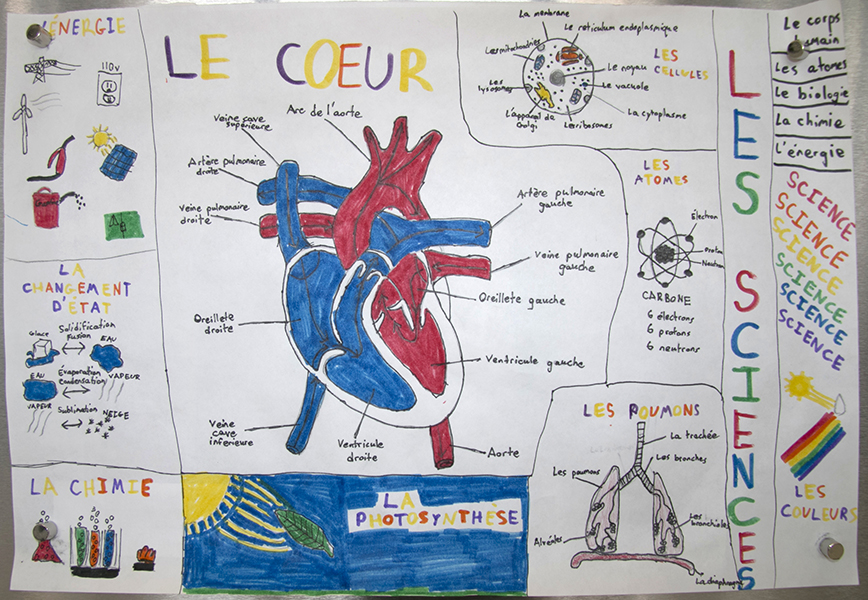 L'ÉNERGIE
110V
LA
CHANGEMENT
D'ÉTAT
Glace
Solidification
Fusion
EAU
EAU
Évaporation
condensation
VAPEUR
VAPEUR
Sublimation
NEIGE
LA CHIMIE
LE COEUR
Veine cave
supérieure
Arc de l'aorte
Artère pulmonaire
droite
Veine pulmonaire
droite
Oreillete
droite
Veine
cave
inférieure
Ventricule
droite
Artère pulmonaire
gauche
Veine pulmonaire
gauche
Oreillete gauche
Ventricule gauche
Aorte
LA
PHOTOSYNTHÈSE
La membrane
Le reticulum endoplasmique
Les mitochondries
LES
CELLULES
Le noyau
Les
lysosomes
Le vacuole
La cytoplasme
L'appareil de
Golgi
Les ribosomes
LES
ATOMES
Électron
Proton
Neutron
CARBONE
6 électrons
6 protons
6 neutrons
LES POUMONS
La trachée
Les bronches
Les poumons
Les
bronchioles
Alvéoles
La diaphragme
LES SCIENCES
Le corps
humain
Les atomes
Le biologie
La chimie
L'énergie
SCIENCE
SCIENCE
SCIENCE
SCIENCE
SCIENCE
SCIENCE
LES
COULEURS